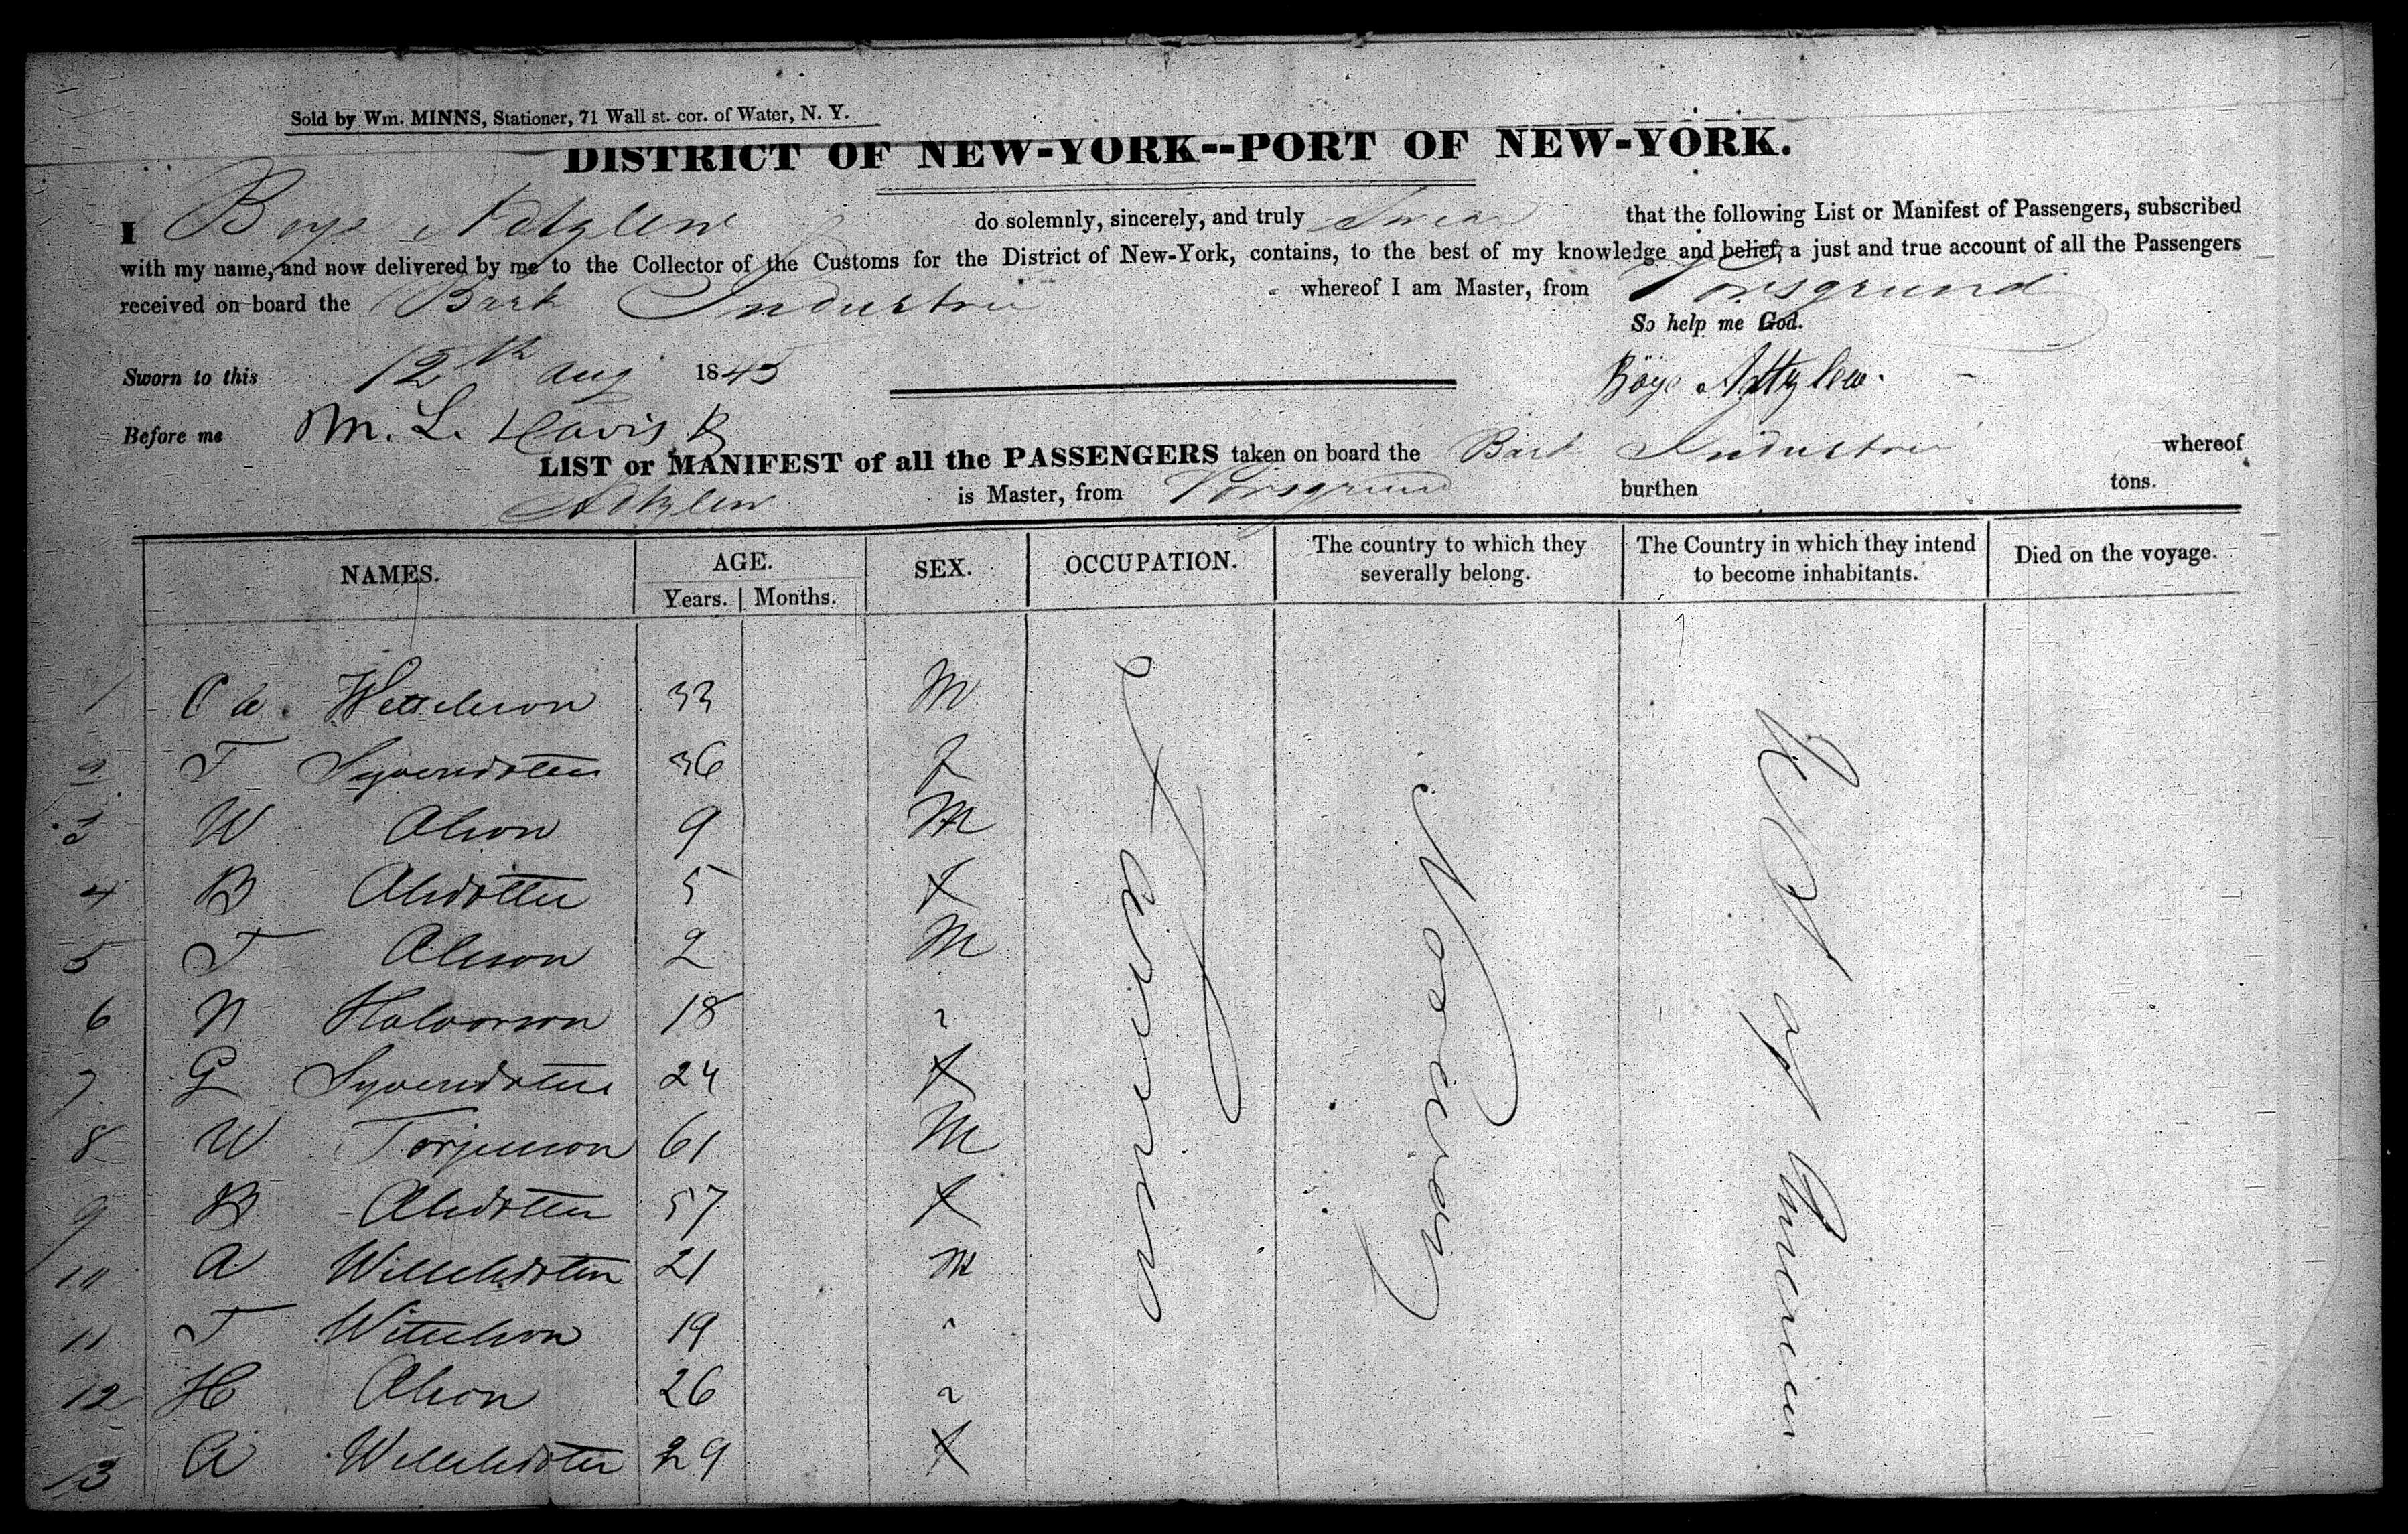 Sold by Wm. MINNS, Stationer, 71 Wall st. cor. of Water, N. Y.
DISTRICT OF NEW-YORK--PORT OF NEW-YORK.
I Boye do solemnly, sincerely, and truly Swear that the following List or Manifest of Passengers, subscribed
with my name, and now delivered by me to the Collector of the Customs for the District of New-York, contains, to the best of my knowledge and belief, a just and true account of all the Passengers
received on board the Bark Industrie whereof I am Master, from Porsgrund
So help me God.
Sworn to this 12th Aug 1845
Böye
Before me M. L. Davis
LIST or MANIFEST of all the PASSENGERS taken on board the Bark Industrie whereof
is Master, from Porsgrund burthen tons.
NAMES. AGE. SEX. OCCUPATION. The country to which they severally belong. The Country in which they intend to become inhabitants. Died on the voyage.
Years. Months.
1 33 M
2 T 36 F
3 W Olson 9 M
4 B Olsdotter 5 F
5 T Olsson 2 M
6 N Halvorson 18 "
7 G 24 F
8 W Torjusson 61 M
9 B Olsdotter 57 F
10 A 21 M
11 T 19 "
12 H Olson 26 "
13 A 29 F
Farmers
Norway
U S of America